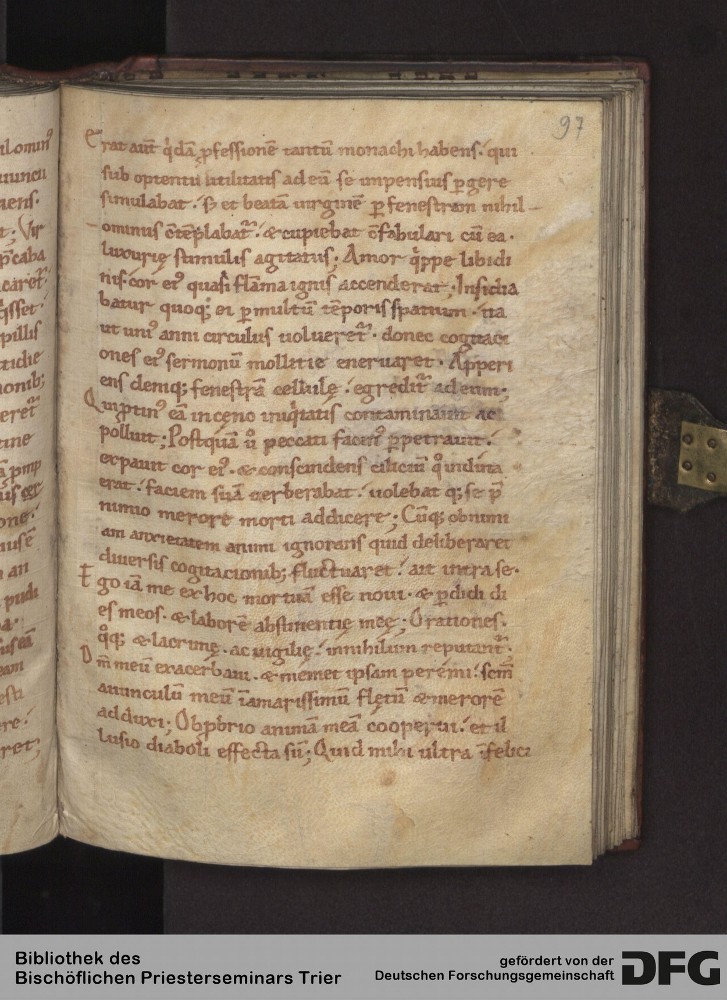 97
Erat aut̄ q̇dā ꝓfessionē tantū monachi habens· qui
sub optentu utilitatis ad eā se impensius ꝑgere
simulabat· S; et beatā uirginē ꝑ fenestram nihil
ominus ꝯtēplabat᷑· & cupiebat ꝯfabulari cū ea·
luxurię stimulis agitatus; Amor q̇ppe libidi
nis· cor ei᷒ quasi flāma ignis accenderat; Insidia
batur quoq; ei ꝑ multū tēporis spatium· ita
ut uni᷒ anni circulus uolueret᷑· donec cogitaci
ones ei᷒ sermonū mollitie eneruaret· Apperi
ens deniq; fenestrā cellulę· egredit᷑ ad eum;
Qui ꝓtin᷒ eā in ceno iniq̇tatis contaminauit ac
polluit; Postquā ů peccati facin᷒ ꝑpetrauit·
expauit cor ei᷒· & conscindens ciliciū q̊ induta
erat· faciem suā uerberabat· uolebat q; se p̄
nimio merore morti addicere; Cūq; ob nimi
am anxietatem animi ignorans quid deliberaret
diuersis cogitacionib; fluctuaret· ait intra se·
Ego iā me ex hoc mortuā esse noui· & ꝑdidi di
es meos· & laborē abstinentię meę; Orationes·
q̊q; & lacrimę· ac uigilię· in nihilum reputant᷑;
Dn̄m meū exacerbaui· & memet ipsam peremi· sc̄m
auunculū meū ī amarissimū flętū & merorē
adduxi; Obꝓbrio animā meā cooperui· et il
lusio diaboli effecta sū; Quid mihi ultra īfelici
Bibliothek des
Bischöflichen Priesterseminars Trier
gefördert von der
Deutschen Forschungsgemeinschaft
DFG